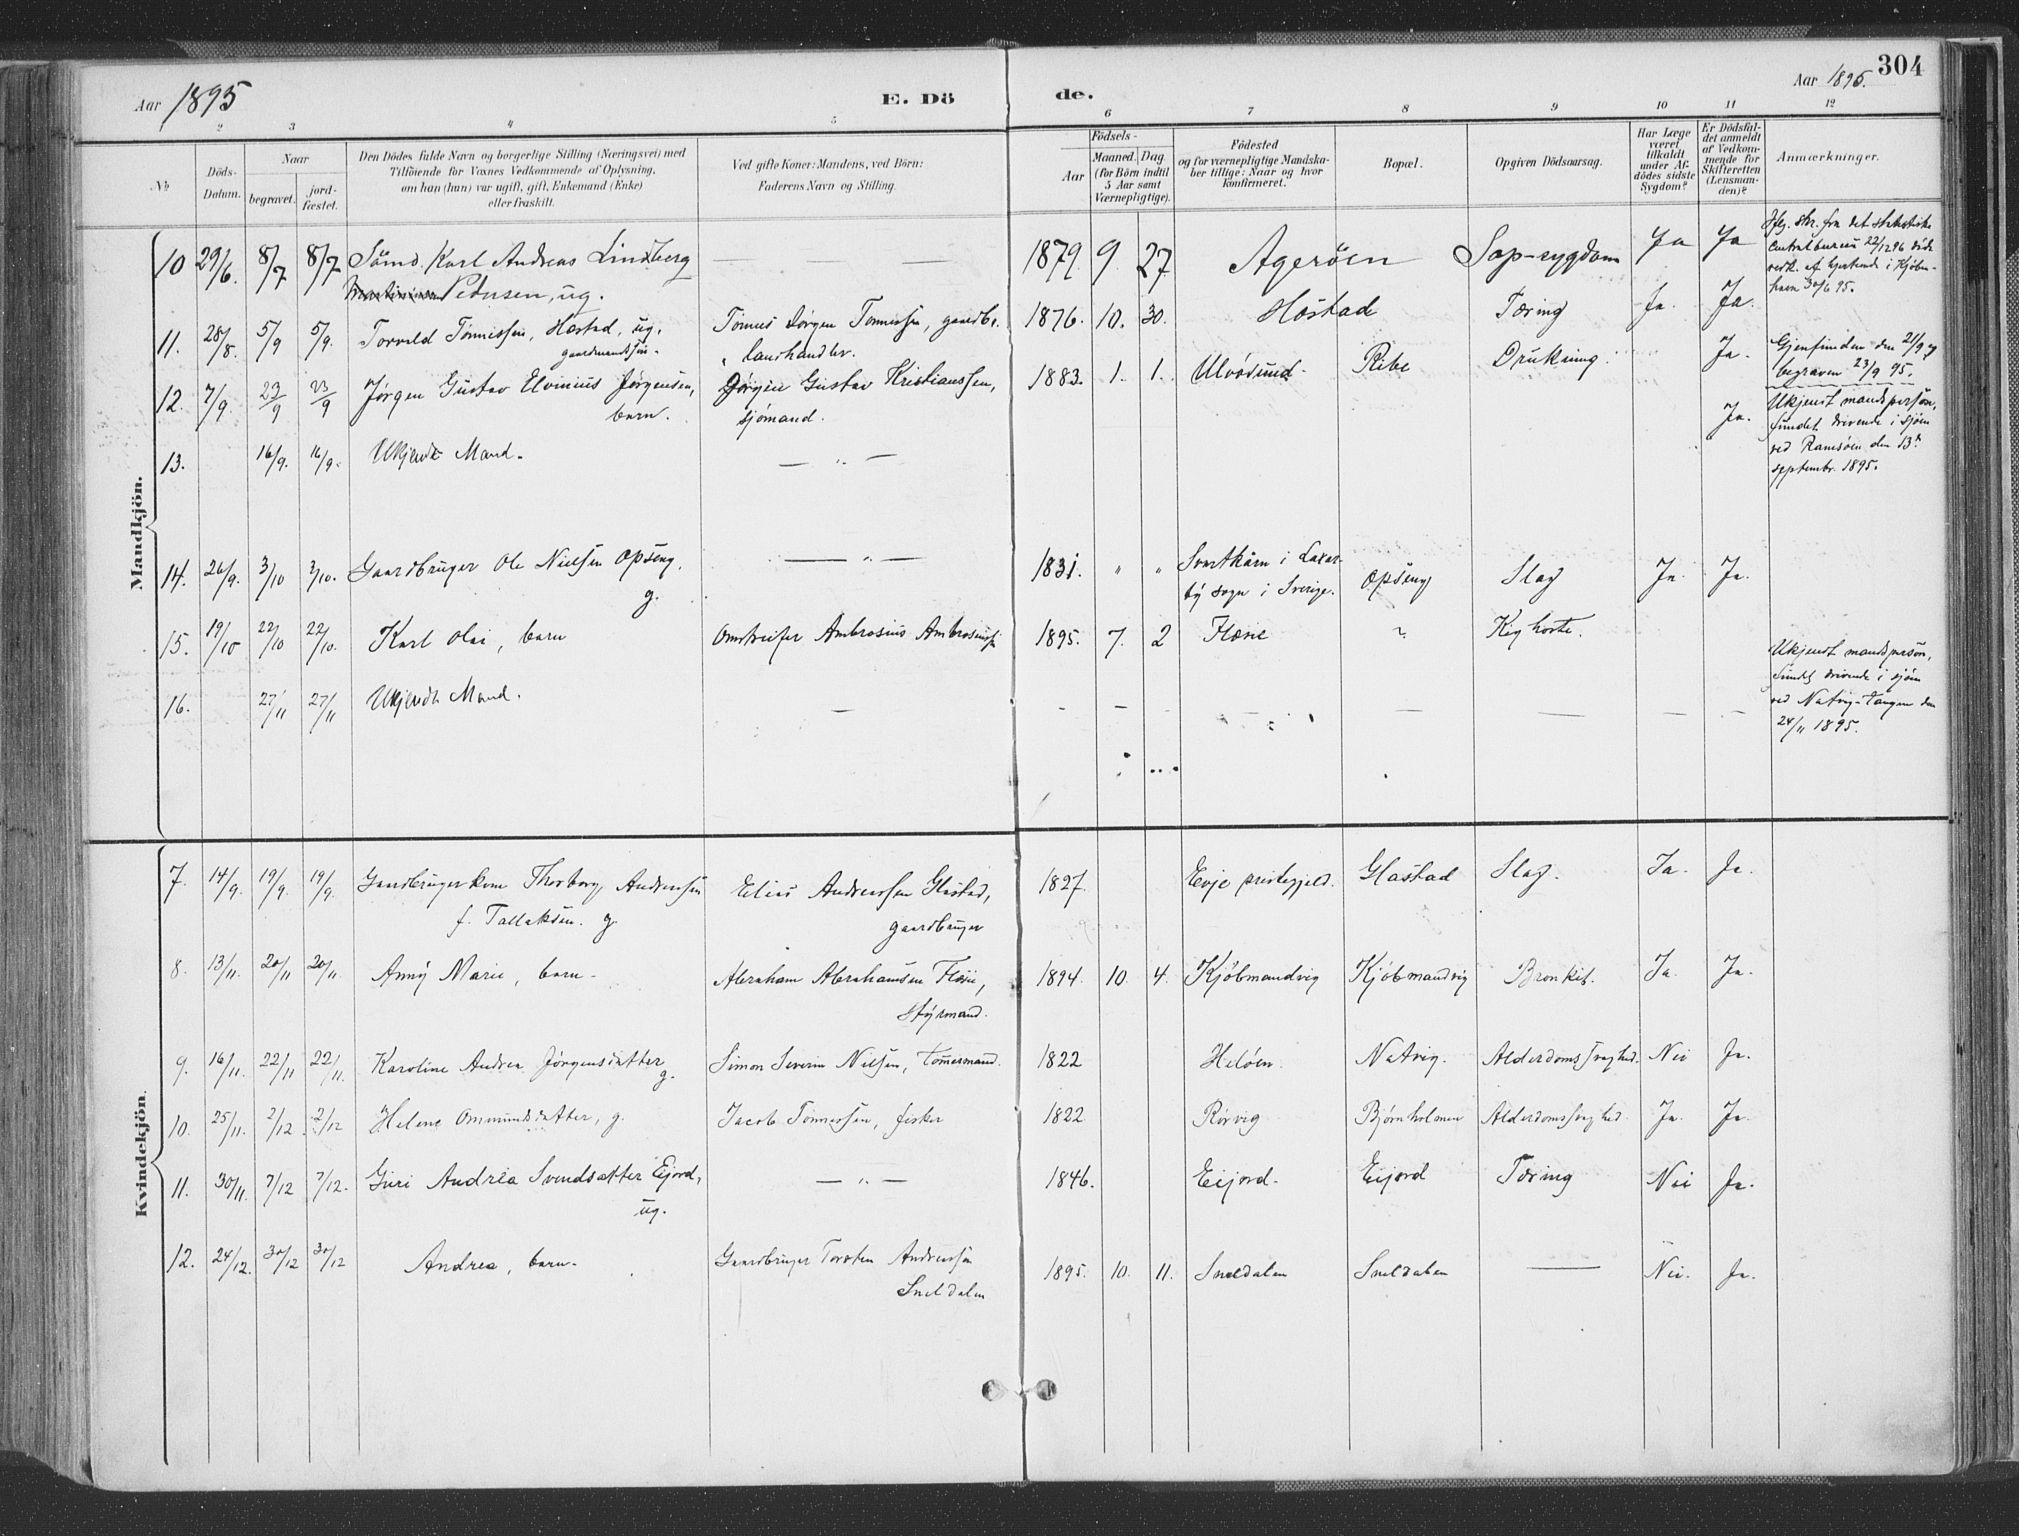 Aar 1895
E. Dö
de.
Aar 1895.
304
1 2 3 4 5 6 7 8 9 10 11 12
№
Döds-Datum.
Naar
begravet.
jord-fæstet.
Den Dödes fulde Navn og borgerlige Stilling (Næringsvei) med
Tilföiende for Voxnes Vedkommende af Oplysning,
om han (hun) var ugift, gift, Enkemand (Enke)
eller fraskilt.
Ved gifte Koner: Mandens, ved Börn:
Faderens Navn og Stilling.
Födsels-
Aar
Maaned. Dag
(for Börn indtil
5 Aar samt
Værnepligtige).
Födested
og for værnepligtige Mandska-
ber tillige: Naar og hvor
konfirmeret.
Bopæl.
Opgiven Dödsaarsag.
Har Læge
været
tilkaldt
under Af-
dödes sidste
Sygdom?
Er Dödsfal-
det anmeldt
af Vedkom-
mende for
Skifteretten
(Lensman-
den)?
Anmærkninger.
Mandkjön.
10 29/6 8/7 8/7 Sömd. Karl Andreas Lindberg 1879 9 27 Agerøen Ja Ja
Pedersen, ug.
skr. fra det statistiske
Centralbureau 22/12 96
i Kjøben-
havn 30/6 95.
11. 28/8 5/9 5/9. Torvald Tønnessen, Høstad, ug. Tønnes Jørgen Tønnessen, gaardbr. 1876. 10. 30. Høstad Tæring Ja Ja.
gaardmandssøn. landhandler.
12. 7/9. 23/9 23/9 Jørgen Gustav Elvinius Jørgensen, Jørgen Gustav Kristianssen, 1883. 1. 1. Ulvøsund. Ribe Drukning. Ja.
barn. sjømand.
Gjenfunden den 21/9 og
begraven 23/9 95.
13. 16/9. 16/9. Ukjendt Mand. — " — Ja.
Ukjendt mandsperson,
fundet drivende i sjøen
ved Ramsøen den 13de
septembr. 1895.
14. 26/9. 3/10 3/10. Gaardbruger Ole Nielsen Opseng. — " — 1831. " " Svartkärn i Laxar-
g. by sogn i Sverige. Opseng Slag Ja. Ja.
15. 19/10 22/10 22/10. Karl Olai, barn Omstreifer Ambrosius Ambrosiussen 1895. 7. 2 Flæsie ~ Kighoste.
16. 27/11 27/11 Ukjendt Mand. — — — — — — — —
Ukjendt mandsperson,
fundet drivende i sjøen
ved Natvig-Tangen den
24/11 1895.
Kvindekjön.
7. 14/9. 19/9. 19/9. Gaardbrugerkone Thorborg Andreassen Elias Andreassen Glastad, 1827. Evje prestegjeld. Glastad Slag. Ja. Ja.
f. Tallaksen. g. gaardbruger
8. 13/11. 20/11 20/11 Anny Marie, barn. Abraham Abrahamsen Flæsie, 1894. 10. 4. Kjøbmandvig Kjøbmandvig Bronkit. Ja. Ja.
styrmand.
9. 16/11. 22/11 22/11. Karoline Andrea Jørgensdatter Simon Severin Nielsen, Tømmermand. 1822 Heløen. Natvig. Alderdomssvaghed. Nei Ja.
g.
10. 25/11. 2/12. 2/12 Helene Ommundsdatter, g. Jacob Tønnessen, fisker 1822 Rørvig Bjørnholmen Alderdomssvaghed. Ja. Ja.
11. 30/11. 7/12 7/12. Guri Andrea Svendsdatter Eijord, — " — 1846. Eijord. Eijord Tæring Nei Ja.
ug.
12. 24/12. 30/12 30/12 Andrea, barn. Gaardbruger Torsten Andreassen 1895. 10. 11. Sneldalen Sneldalen — Nei. Ja.
Sneldalen